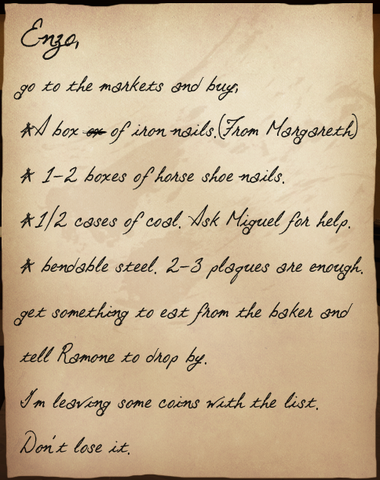 Enzo,
go to the markets and buy;
*A box or of iron nails.(From Margareth)
* 1-2 boxes of horse shoe nails.
*1/2 cases of coal. Ask Miguel for help.
* bendable steel. 2-3 plaques are enough.
get something to eat from the baker and
tell Ramone to drop by.
I'm leaving some coins with the list.
Don't lose it.